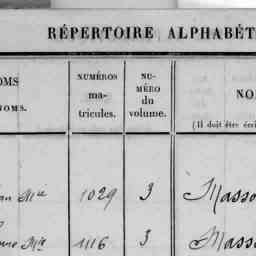 RÉPERTOIRE ALPHABÉT
OMS
NOMS.
NUMÉROS
ma-
tricules.
NU-
MÉRO
du
volume.
NO
(Il doit être écri
an Mie 1029 3 Masso
Mie 1116 3 Masso